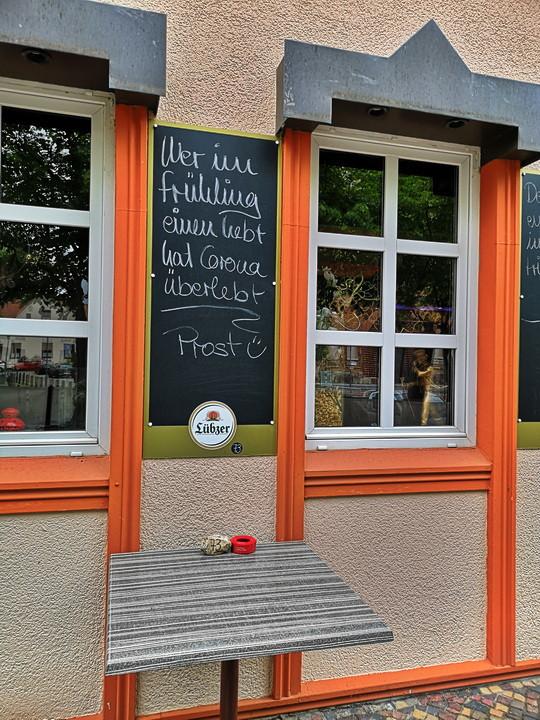 Wer im
frühling
einen hebt
hat Corona
überlebt
Prost
Lübzer